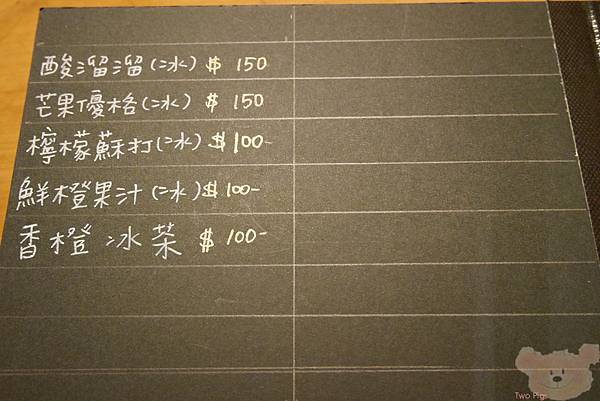 酸溜溜(冰) $ 150
芒果優格(冰) $ 150
檸檬蘇打(冰) $100-
鮮橙果汁(冰) $100-
香橙冰茶 $ 100-
Two Pigs